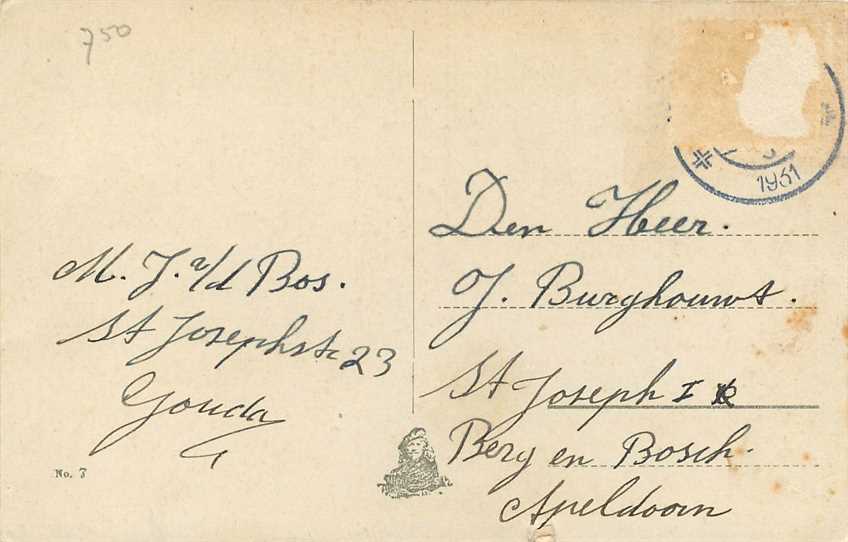 750
1931
M. J. v/d Bos.
St Josephstr 23
Gouda
No. 7
Den Heer.
J. Burghouwt.
St Joseph I
Berg en Bosch.
Apeldoorn